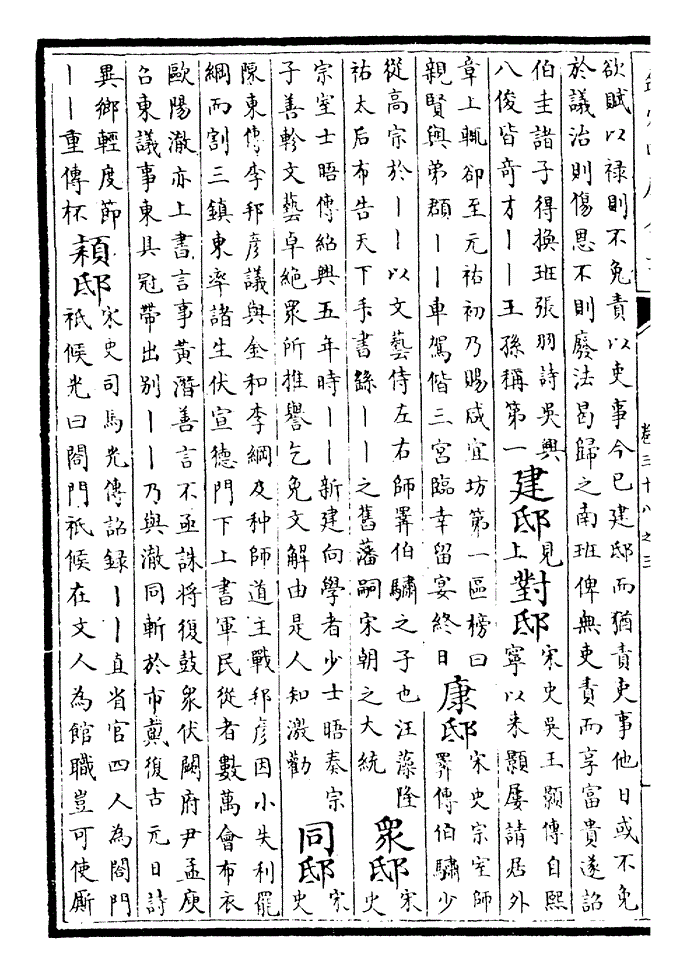 卷三十八之三
欲賦以禄則不免責以吏事今已建邸而猶責吏事他日或不免
於議治則傷恩不則廢法曷歸之南班俾無吏責而享富貴遂詔
伯圭諸子得換班張羽詩吳興
八俊皆奇才丨丨王孫稱第一
建邸
見
上
對邸
宋史吳王顥傳自熙
寧以来顥屢請居外
章上輒卻至元祐初乃賜咸宜坊第一區榜曰
親賢與弟頵丨丨車駕偕三宮臨幸留宴終日
康邸
宋史宗室師
羿傳伯驌少
從高宗於丨丨以文藝侍左右師羿伯驌之子也汪藻隆
祐太后布告天下手書繇丨丨之舊藩嗣宋朝之大統
衆邸
宋
史
宗室士晤傳紹興五年時丨丨新建向學者少士晤奏宗
子善軫文藝卓絕眾所推譽乞免文解由是人知激勸
同邸
宋
史
陳東傳李邦彥議與金和李綱及种師道主戰邦彥因小失利罷
綱而割三鎮東率諸生伏宣德門下上書軍民從者數萬會布衣
歐陽澈亦上書言事黃潛善言不亟誅將復鼓衆伏闕府尹孟庾
召東議事東具冠帶出别丨丨乃與澈同斬於市戴復古元日詩
異鄉輕度節
丨丨重傳杯
頴邸
宋史司馬光傳詔録丨丨直省官四人為閤門
祗候光曰閤門祗候在文人為館職豈可使厮